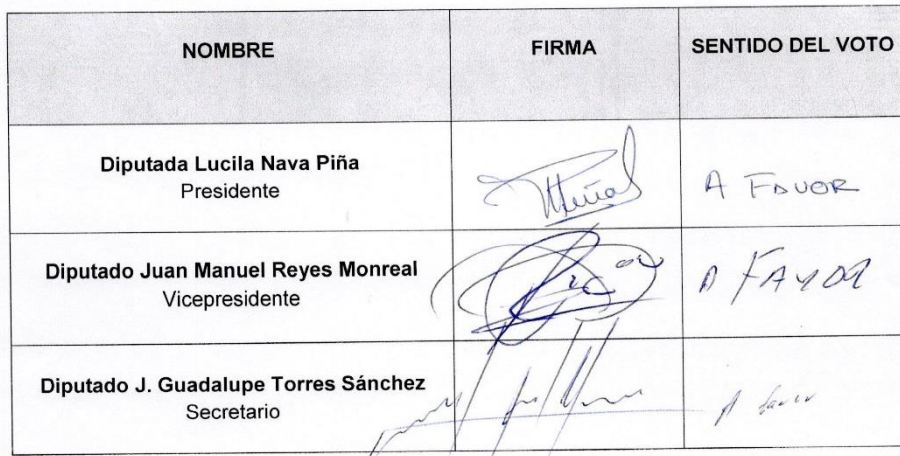 NOMBRE
FIRMA
SENTIDO DEL VOTO
Diputada Lucila Nava Piña
Presidente
A FAVOR
Diputado Juan Manuel Reyes Monreal
Vicepresidente
A FAVOR
Diputado J. Guadalupe Torres Sánchez
Secretario
A favor